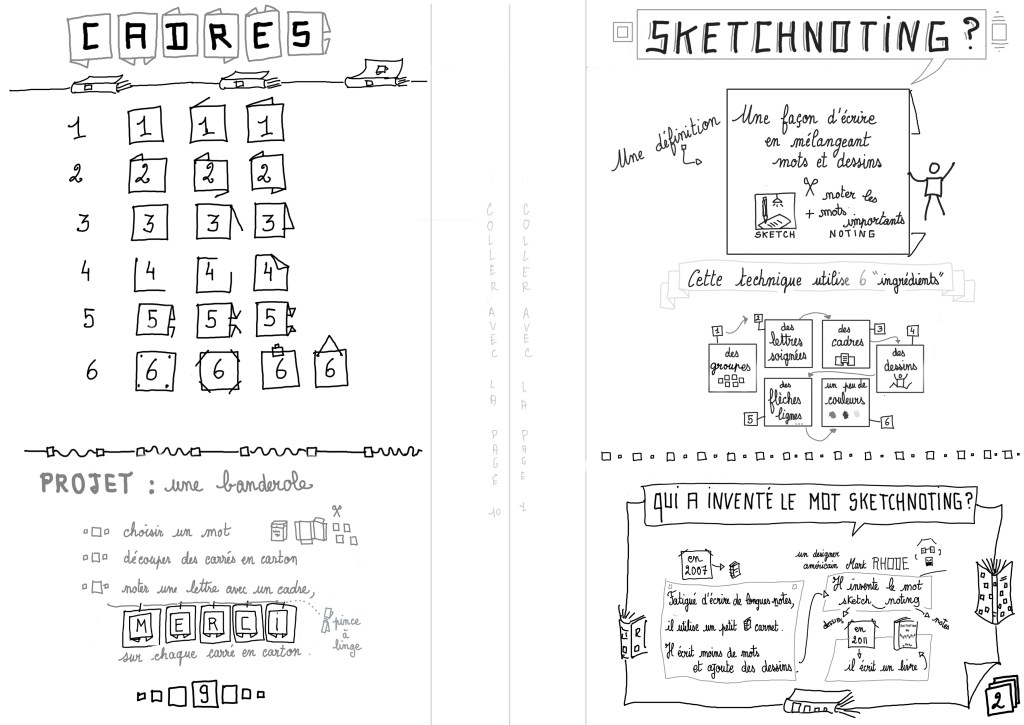 CADRES
1 1 1 1
2 2 2 2
3 3 3 3
4 4 4 4
5 5 5 5
6 6 6 6 6
PROJET : une banderole
choisir un mot
découper des carrés en carton
noter une lettre avec un cadre,
MERCI
pince
à
linge
sur chaque carré en carton.
9
COLLER AVEC LA PAGE 10
COLLER AVEC LA PAGE 1
SKETCHNOTING ?
Une définition
Une façon d'écrire
en mélangeant
mots et dessins
noter les
+ mots
importants
SKETCH NOTING
Cette technique utilise 6 "ingrédients"
1
des
groupes
2
des
lettres
soignées
des
cadres
3
4
des
dessins
5
des
flèches
lignes...
un peu de
couleurs
6
QUI A INVENTÉ LE MOT SKETCHNOTING ?
en
2007
Fatigué d'écrire de longues notes,
il utilise un petit carnet.
Il écrit moins de mots
et ajoute des dessins.
un designer
américain Mark RHODE
Il invente le mot
sketch_noting
dessin
notes
en
2011
il écrit un livre
2